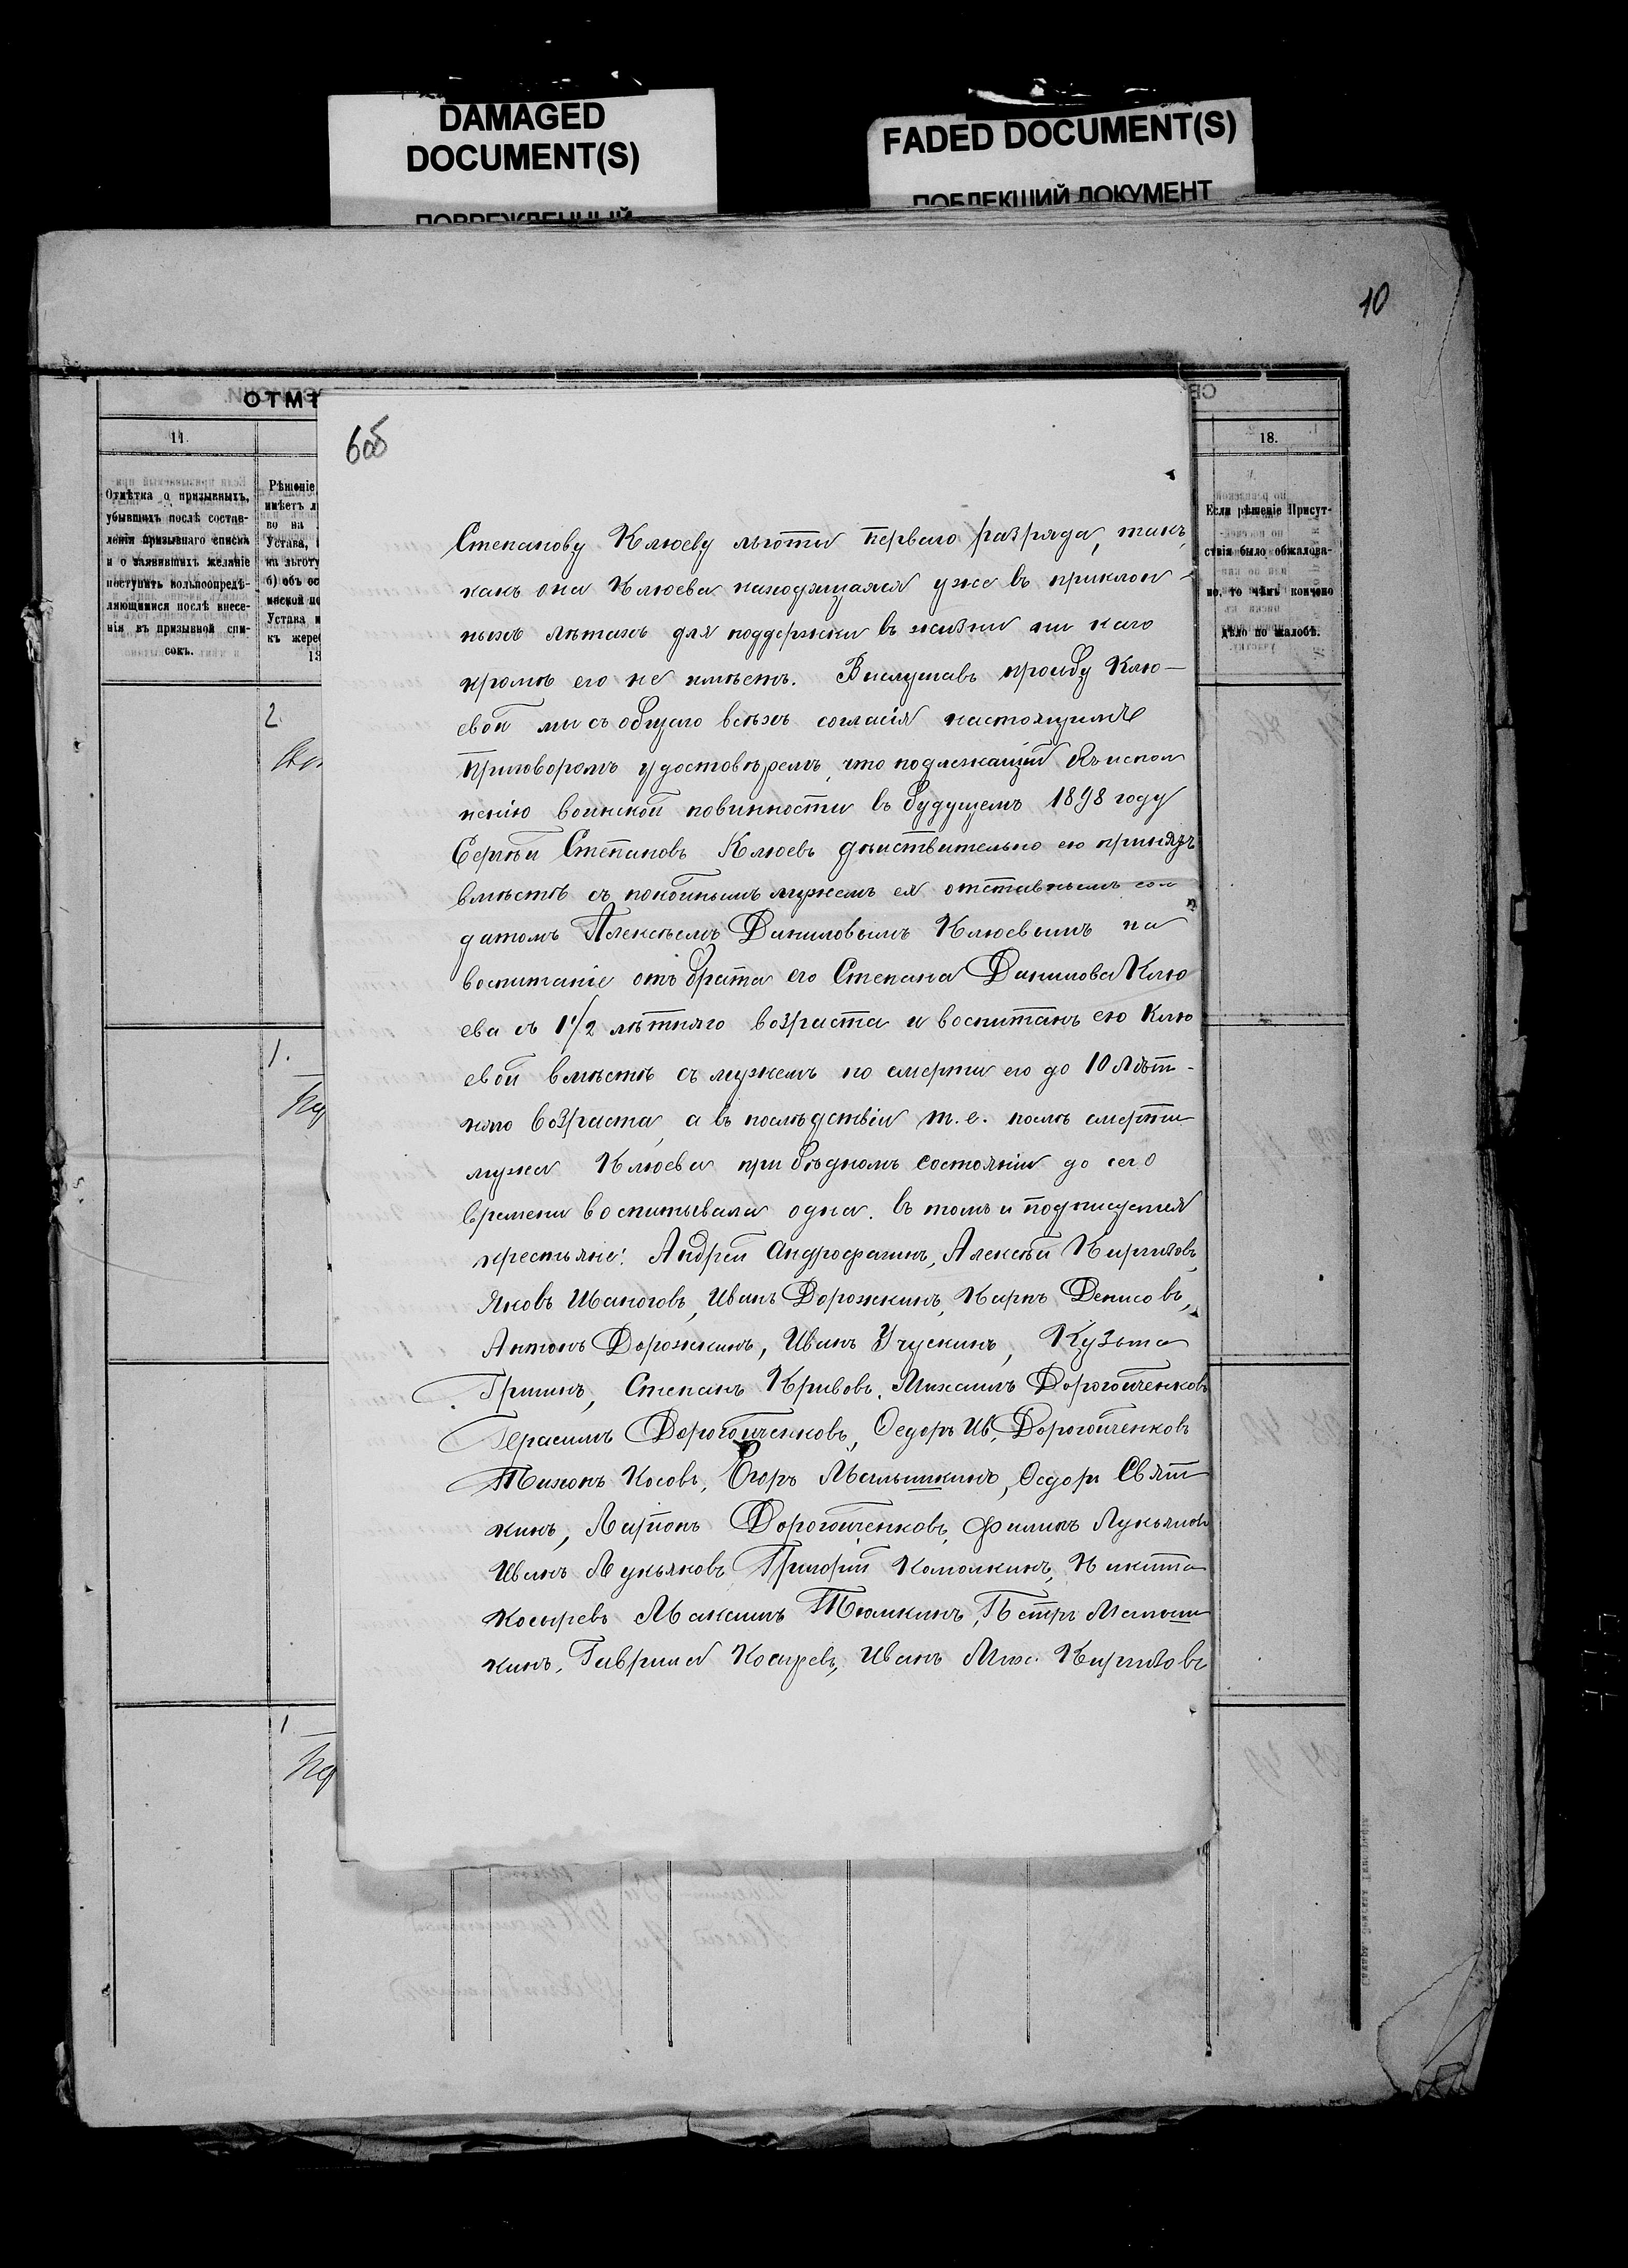 DAMAGED
DOCUMENT(S)
ПОВРЕЖДЕННЫЙ
FADED DOCUMENT(S)
ПОБЛЕКШИЙ ДОКУМЕНТ
10
ОТМѢ
11.
Отмѣтка о призывныхъ,
убывшихъ послѣ состав-
ленія призывнаго списка
и о заявившихъ желаніе
поступить вольноопредѣ-
ляющимися послѣ внесе-
нія въ призывной спи-
сокъ.
Рѣшеніе
имѣетъ л
во на
Устава,
на льготу
б) объ ос
инской по
Устава и
къ жереб
13
2.
1.
1
18.
Если рѣшеніе Присут-
ствія было обжалова-
но, то чѣмъ кончено
дѣло по жалобѣ.
6об
Степанову Клюеву льготы перваго разряда, такъ
какъ она Клюева находящаяся уже въ приклон-
ныхъ лѣтахъ для поддержки въ жизни ни каго
кромѣ его не имѣетъ. Выслушавъ прозьбу Клю-
евой мы съ общаго всѣхъ согласія настоящимъ
приговоромъ удостовѣряемъ, что подлежащій къ испол
ненію воинской повинности въ будущемъ 1898 году
Сергѣй Степановъ Клюевъ дѣйствительно ею принятъ
вмѣстѣ съ покойнымъ мужемъ ея отставнымъ сол
датомъ Алексѣемъ Даниловымъ Клюевымъ на
воспитаніе отъ брата его Степана Данилова Клю
ева съ 1 1/2 лѣтняго возраста и воспитанъ ею Клю
евой вмѣстѣ съ мужемъ по смерти его до 10 лѣт-
няго возраста, а въ послѣдствіи т.е. послѣ смерти
мужа Клюева при бѣдномъ состояніи до сего
времени воспитывала одна. въ томъ и подписуемся
крестьяне: Андрей Андрофагинъ, Алексѣй Кирпиловъ,
Яковъ Иваноговъ, Иванъ Дорожкинъ, Карпъ Денисовъ,
Антонъ Дорожкинъ, Иванъ Учускинъ, Кузьма
Гришинъ, Степанъ Кривовъ, Михаилъ Дорогойченковъ
Герасимъ Дорогойченковъ, Ѳедоръ Ив. Дорогойченковъ
Тихонъ Косовъ, Егоръ Малышкинъ, Ѳедоръ Свят
кинъ, Ларіонъ Дорогойченковъ, Филипъ Лукьяновъ
Иванъ Лукьяновъ, Григорій Комолкинъ, Никита
Косыревъ Максимъ Тюмкинъ, Петръ Матош
кинъ, Гаврила Косыревъ, Иванъ Мих. Кирпиловъ